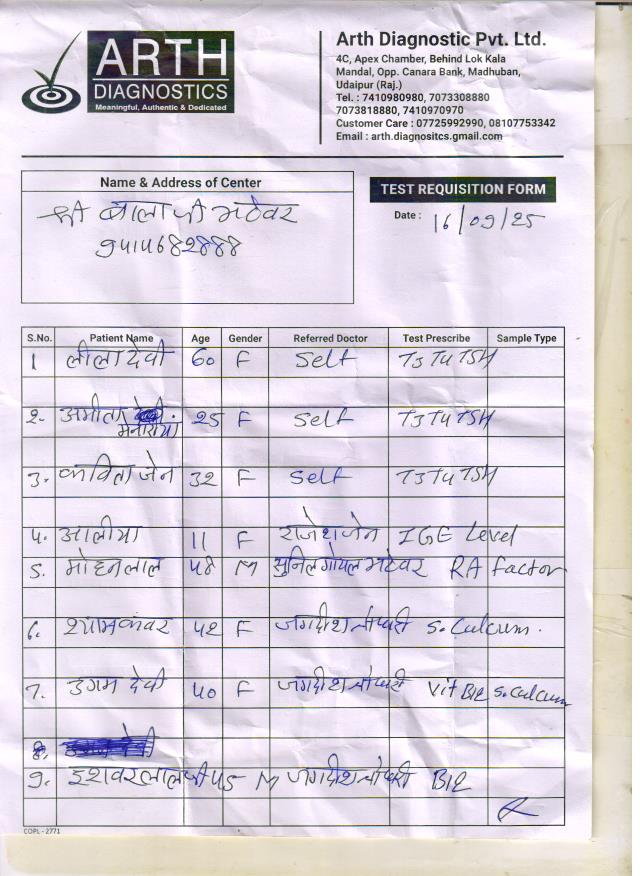 ARTH
DIAGNOSTICS
Meaningful, Authentic & Dedicated
Arth Diagnostic Pvt. Ltd.
4C, Apex Chamber, Behind Lok Kala
Mandal, Opp. Canara Bank, Madhuban,
Udaipur (Raj.)
Tel. : 7410980980, 7073308880
7073818880, 7410970970
Customer Care : 07725992990, 08107753342
Email : arth.diagnositcs.gmail.com
Name & Address of Center
श्री बालाजी भटेवर
9414682888
TEST REQUISITION FORM
Date : 16/09/25
S.No. Patient Name Age Gender Referred Doctor Test Prescribe Sample Type
1 लीला देवी 60 F Self T3 T4 TSH
2. अमीता 25 F Self T3 T4 TSH
3. कविता जेन 32 F Self T3 T4 TSH
4. आलीया 11 F राजेश जेन IGE Level
5. मोहनलाल 48 M सुनिल गोयल भटेवर RA factor
6. श्यामकंवर 42 F जगदीश S. Calcum.
7. डगम देवी 40 F जगदीश Vit B12 S. Calcum
8.
9. इशवरलालजी 45 M जगदीश B12
COPL - 2771